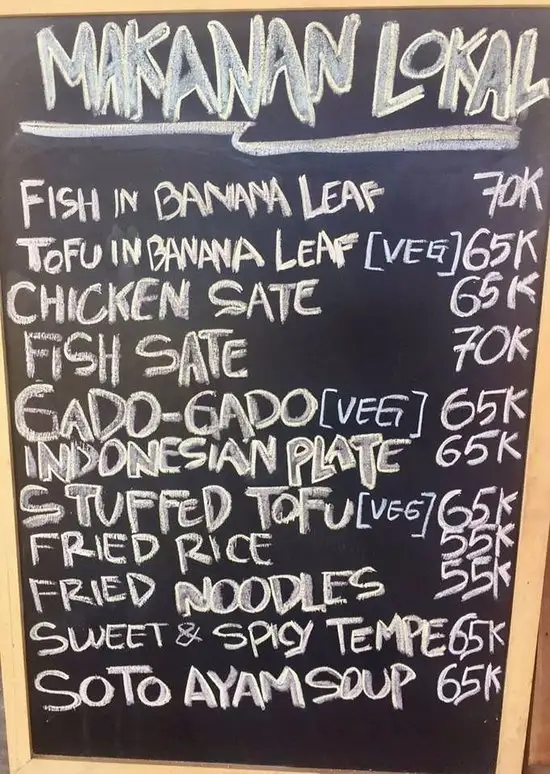 MAKANAN LOKAL
FISH IN BANANA LEAF 70K
TOFU IN BANANA LEAF [VEG] 65K
CHICKEN SATE 65K
FISH SATE 70K
GADO-GADO [VEG] 65K
INDONESIAN PLATE 65K
STUFFED TOFU [VEG] 65K
FRIED RICE 55K
FRIED NOODLES 55K
SWEET & SPICY TEMPE 65K
SOTO AYAM SOUP 65K